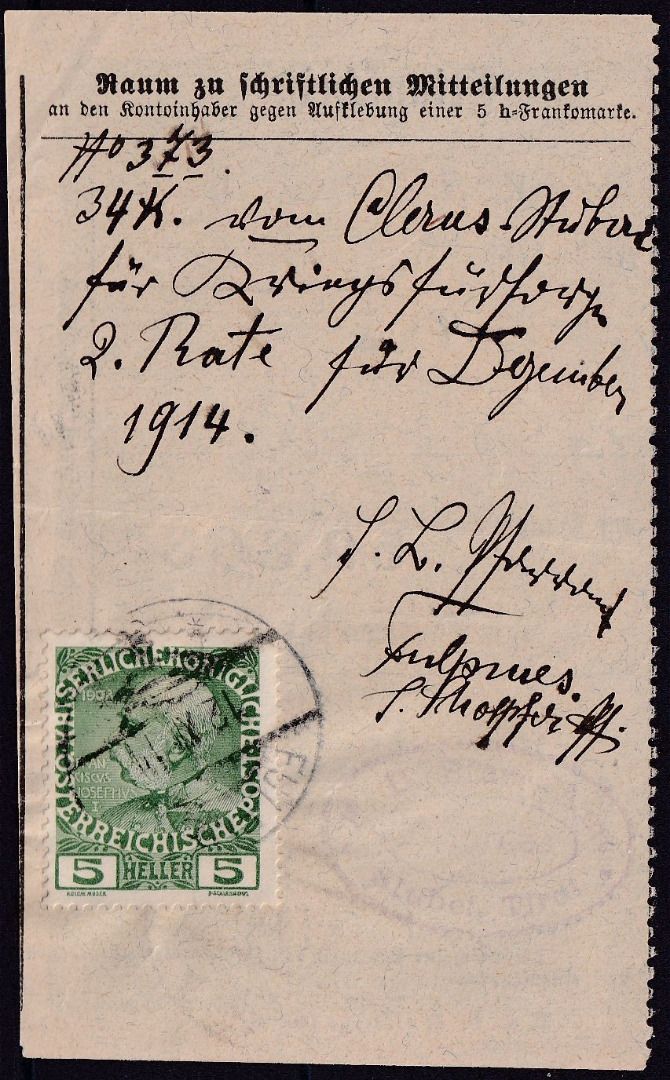 Raum zu schriftlichen Mitteilungen
an den Kontoinhaber gegen Aufklebung einer 5 h-Frankomarke.
No 373.
34 K. vom Clerus Stubai
für Kriegsfürsorge
2. Rate für Dezember
1914.
Fulpmes.
KAISERLICHE KÖNIGLICHE ÖSTERREICHISCHE POST
1908
FRANCISCUS
JOSEPHUS
I.
5 HELLER 5
FU